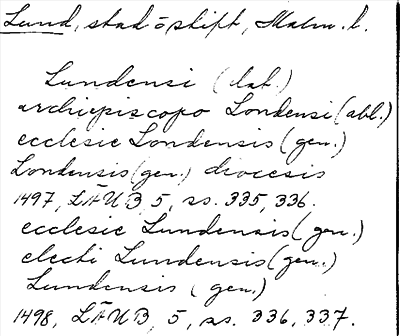 Lund, stad o skift, Malm. l.
Lundensi (dat.)
archiepiscopo Londensi (abl.)
ecclesie Londensis (gen.)
Londensis (gen.) diocesis
1497, LÄUB 5, ss. 335, 336.
ecclesie Lundensis (gen.)
electi Lundensis (gen.)
Lundensis (gen.)
1498, LÄUB, 5, ss. 336, 337.